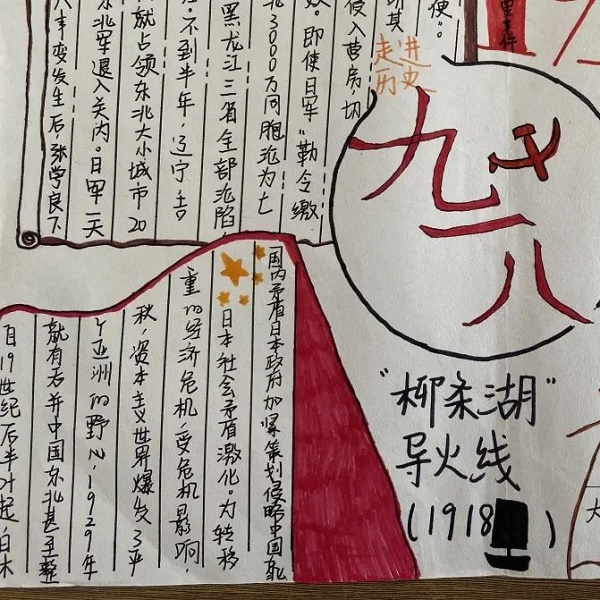 八事变发生后,张学良下
东北军退入关内。日军一天
就占领东北大小城市20
不到半年,辽宁、吉
黑龙江三省全部沦陷
北3000万同胞沦为亡
奴。即使日军“勒令缴
侵入营房,切
其
便”。
事件
走进
历史
九一八
自19世纪后半叶起,日本
就有吞并中国东北甚至整
个亚洲的野心。1929年
秋,资本主义世界爆发了严
重的经济危机,受危机影响,
日本社会矛盾激化。为转移
国内矛盾日本政府加紧策划侵略中国东北
“柳条湖”
导火线
(1918)
大